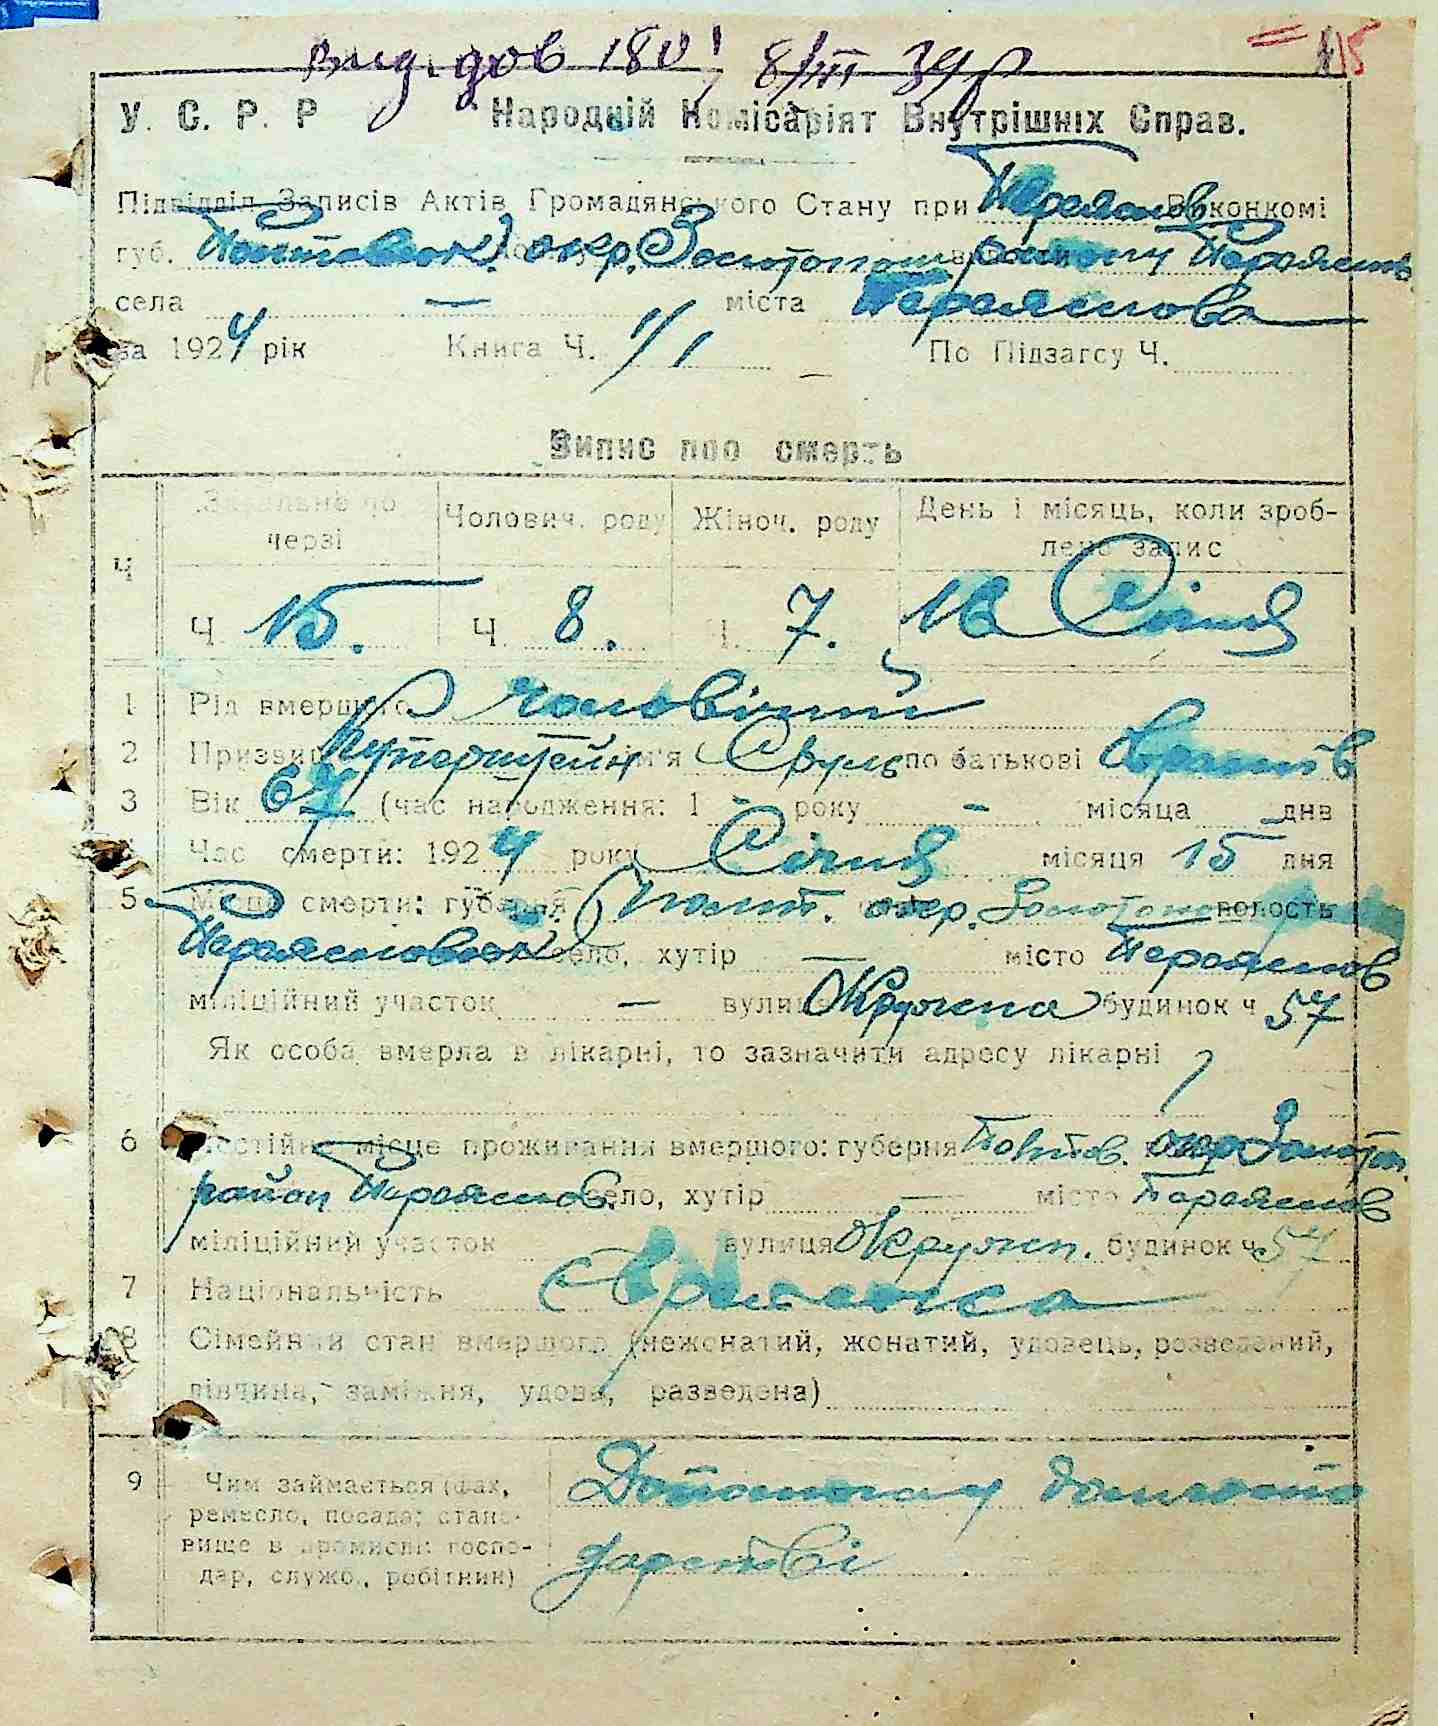 вид. дов 180! 8/III 39 р
115
У. С. Р. Р Народній Комісаріят Внутрішніх Справ.
Підвідділ Записів Актів Громадянського Стану при Переяслов Виконкомі
губ. Полтавськ. окр. Золотонош району Переяслів
села — міста Переяслова
за 1924 рік Книга Ч. 1/1 По Підзагсу Ч.
Випис про смерть
Загальне по Чолович. роду Жіноч. роду День і місяць, коли зроб-
черзі лено запис
Ч
Ч. 15. Ч. 8. Ч. 7. 16 Січня
1 Рід вмершого чоловічий
2 Призвище Куперштейн ім'я Сруль по батькові
3 Вік 67 (час народження: 1 - року - місяца днв
4 Час смерти: 1924 року Січня місяця 15 дня
5 Місце смерти: губерня Полт. окр. Золотонош волость
Переясловськ село, хутір — місто Переяслов
міліційний участок — вулиця Окружна будинок ч 57
Як особа вмерла в лікарні, то зазначити адресу лікарні
6 Постійне місце проживання вмершого: губерня Полтов. окр Золотон.
район Переяслов. село, хутір — місто Переяслов
міліційний участок вулиця Окружн. будинок ч 57
7 Національність Єврейська
8 Сімейний стан вмершого (нежонатий, жонатий, удовець, розведений,
дівчина, заміжня, удова, разведена)
9 Чим займається (фах,
ремесло, посада; стано-
вище в промислі: госпо-
дар, служб., робітник)
Допомогач домогос
дарстві